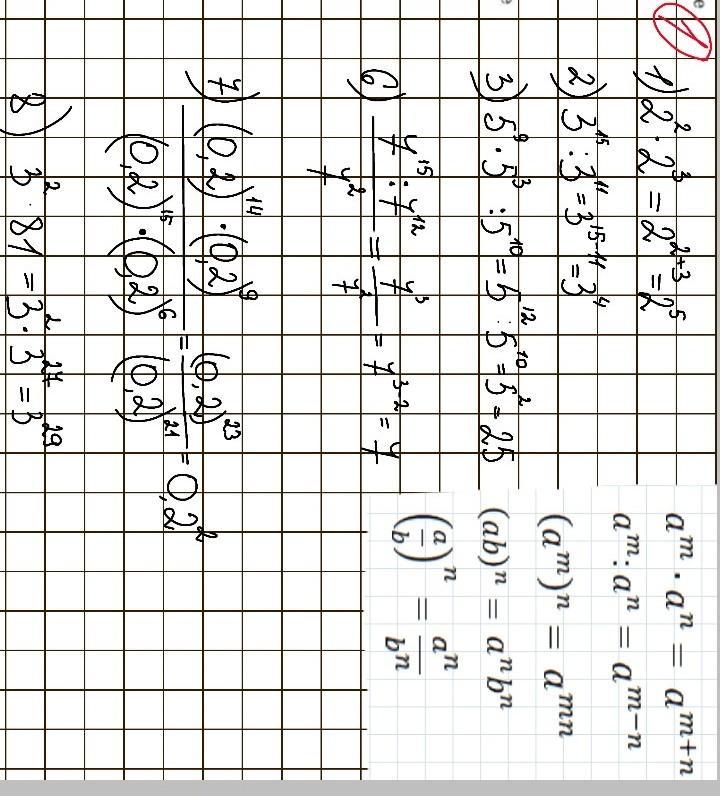 1
1) 2² · 2³ = 2²⁺³ = 2⁵
2) 3¹⁵ : 3¹¹ = 3¹⁵⁻¹¹ = 3⁴
3) 5⁹ · 5³ : 5¹⁰ = 5¹² : 5¹⁰ = 5² = 25
6) (7¹⁵ : 7¹²) / 7² = 7³ / 7² = 7³⁻² = 7
7) ((0,2)¹⁴ · (0,2)⁹) / ((0,2)¹⁵ · (0,2)⁶) = (0,2)²³ / (0,2)²¹ = 0,2²
8) 3² · 81 = 3² · 3²⁷ = 3²⁹
aᵐ · aⁿ = aᵐ⁺ⁿ
aᵐ : aⁿ = aᵐ⁻ⁿ
(aᵐ)ⁿ = aᵐⁿ
(ab)ⁿ = aⁿbⁿ
(a/b)ⁿ = aⁿ/bⁿ